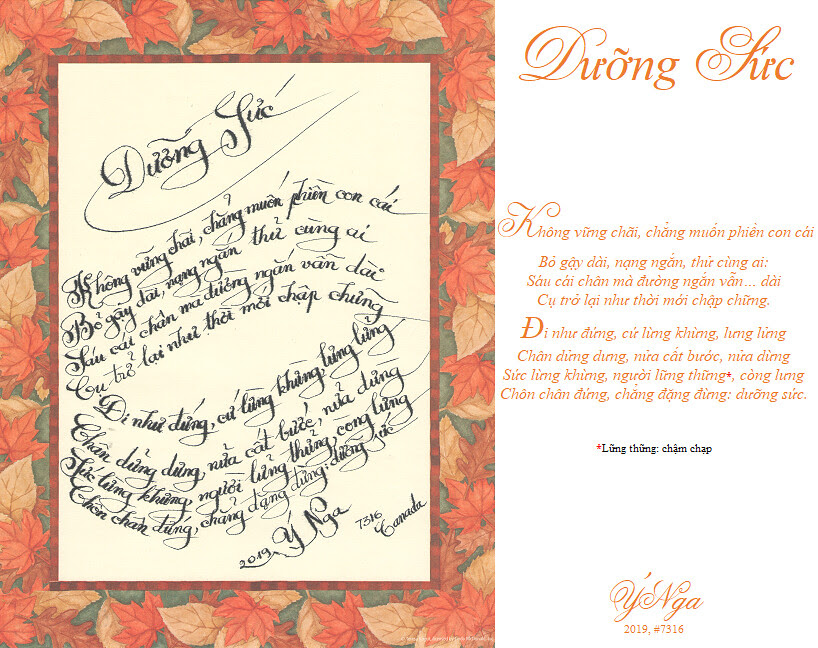 Dưỡng Sức
Không vững chãi, chẳng muốn phiền con cái
Bỏ gậy dài, nạng ngắn thử cùng ai
Sáu cái chân mà đường ngắn vẫn dài
Cụ trở lại như thời mới chập chững
Đi như đứng, cứ lừng khừng, lưng lửng
Chân dửng dưng, nửa cất bước, nửa dừng
Sức lừng khừng, người lững thững, còng lưng
Chôn chân đứng, chẳng đặng đừng: dưỡng sức
2019 Ý Nga 7316 Canada
Dưỡng Sức
Không vững chãi, chẳng muốn phiền con cái
Bỏ gậy dài, nạng ngắn, thử cùng ai:
Sáu cái chân mà đường ngắn vẫn... dài
Cụ trở lại như thời mới chập chững.
Đi như đứng, cứ lừng khừng, lưng lửng
Chân dửng dưng, nửa cất bước, nửa dừng
Sức lừng khừng, người lững thững*, còng lưng
Chôn chân đứng, chẳng đặng đừng: dưỡng sức.
*Lững thững: chậm chạp
Ý Nga
2019, #7316